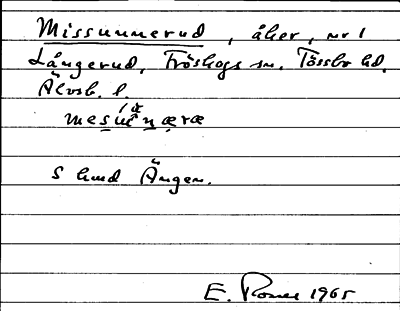 Missunnerud, åker, nr 1
Långerud, Fröskogs sn. Tössbo hd.
Älvsb. l.
S hmd Ängen.
E. Rosell 1965